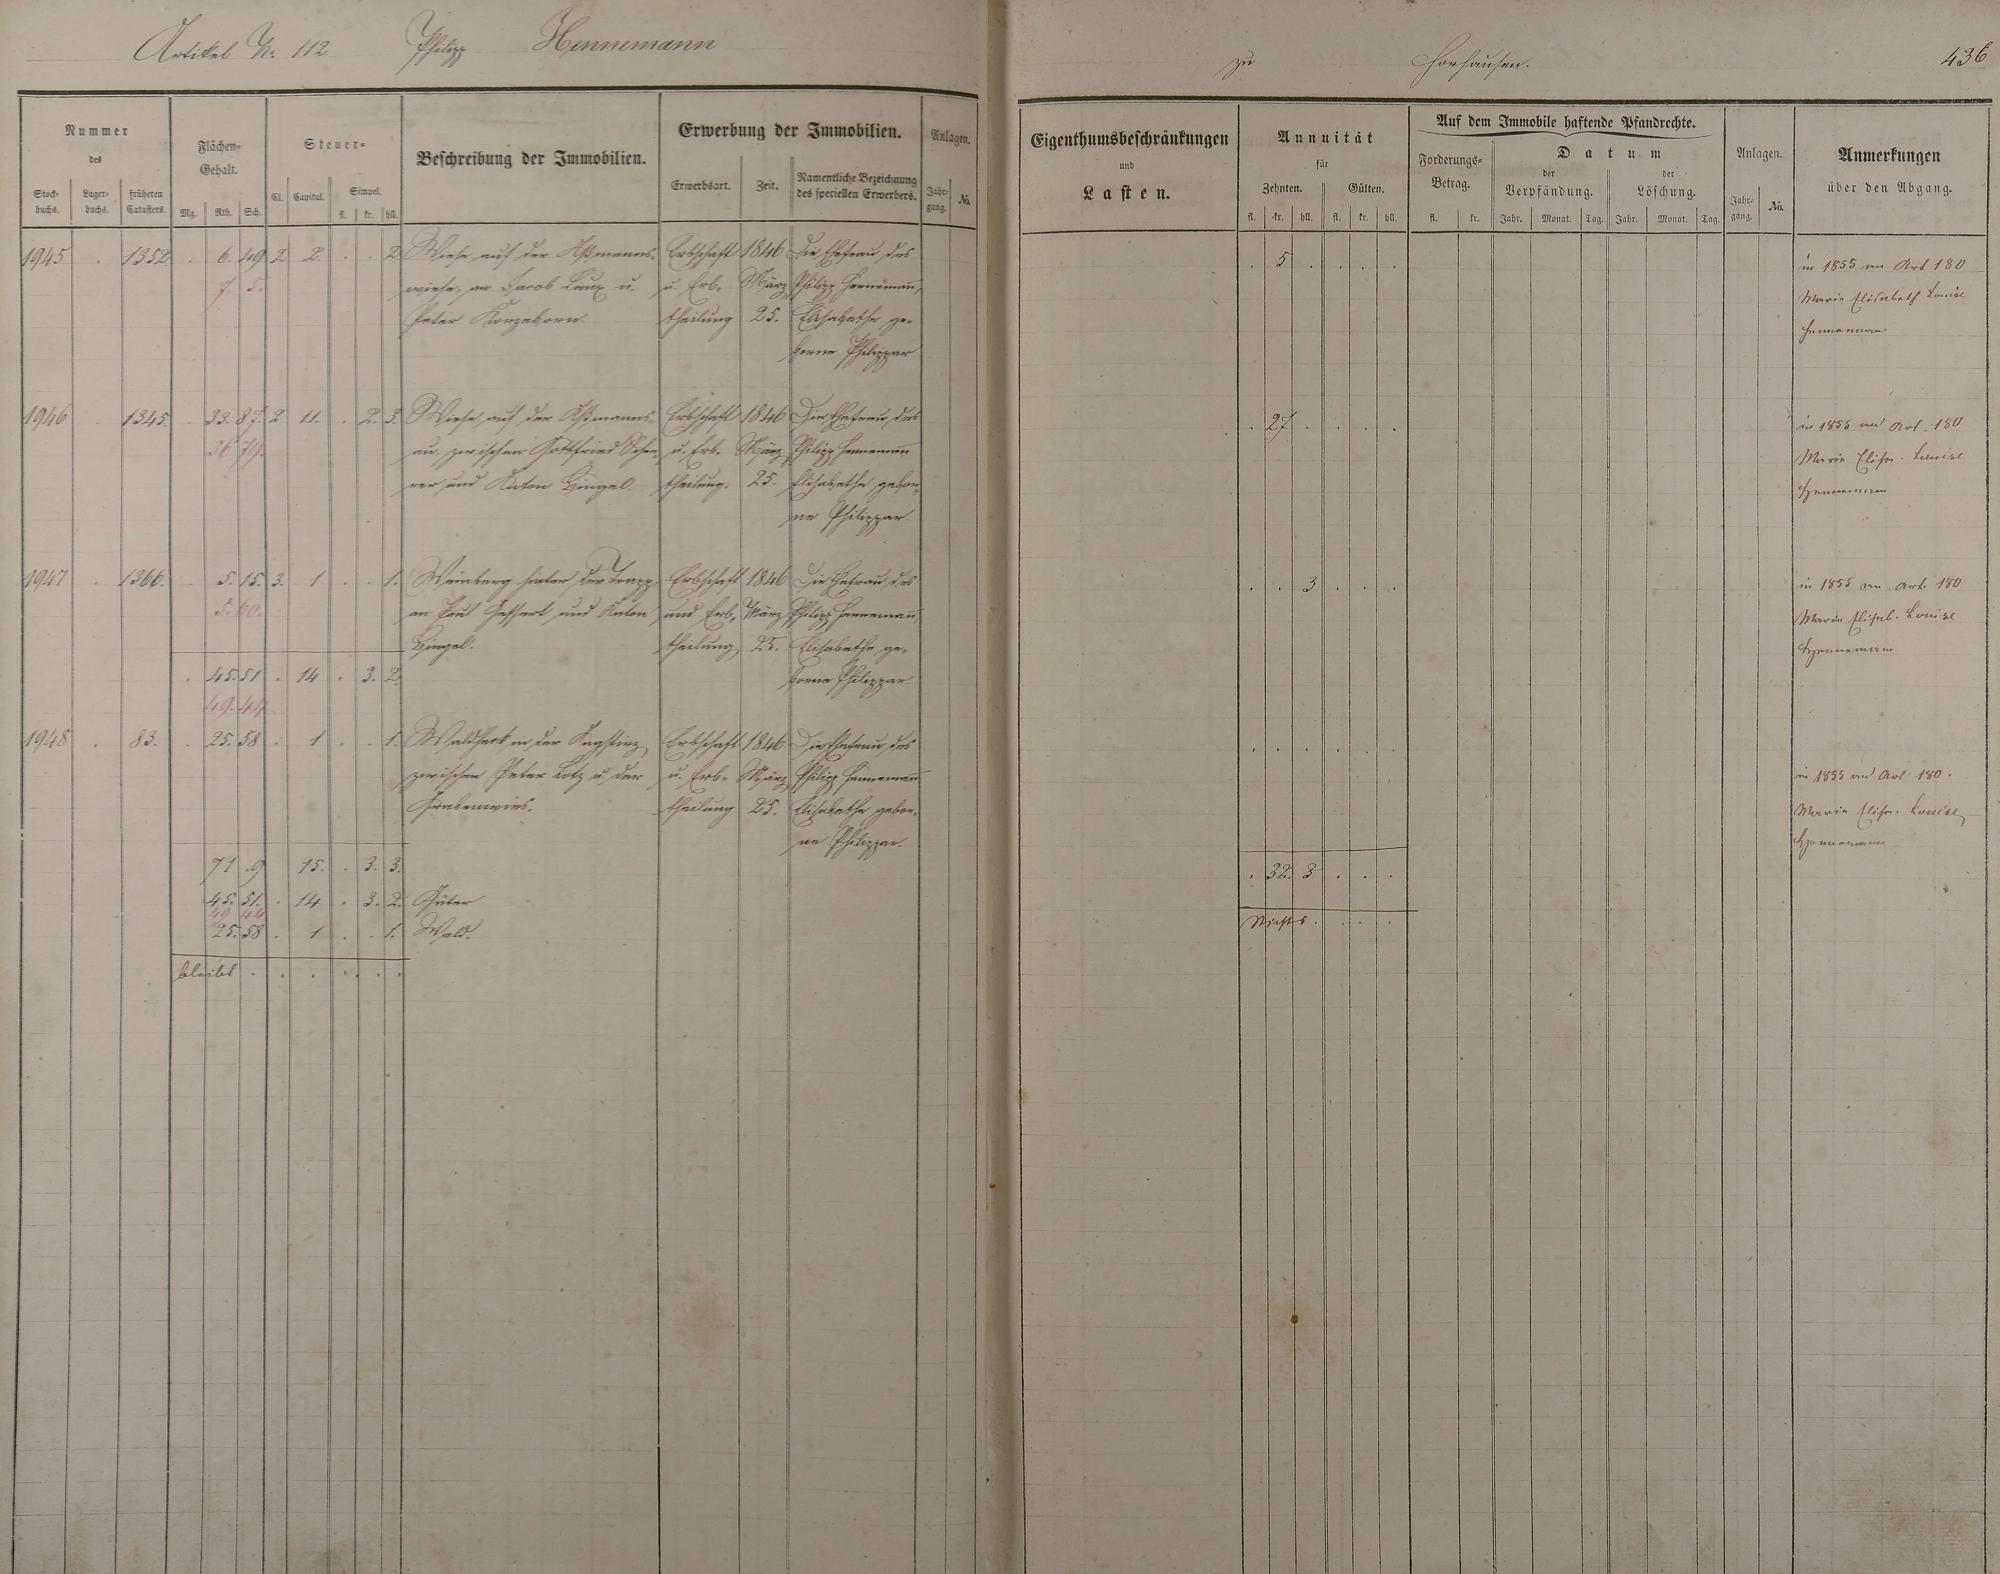 Artikel No. 112. Philipp Hennemann zu Horhausen. 436
Nummer
des
Stock-
buchs.
Lager-
buchs.
früheren
Catasters.
Flächen-
Gehalt.
Mg. Rth. Sch.
Steuer-
Cl. Capital. Simpel.
fl. kr. hll.
Beschreibung der Immobilien.
Erwerbung der Immobilien.
Erwerbsart. Zeit. Namentliche Bezeichnung
des speciellen Erwerbers.
Anlagen.
Jahr-
gang. No.
Eigenthumsbeschränkungen
und
Lasten.
Annuität
für
Zehnten. Gülten.
fl. kr. hll. fl. kr. hll.
Auf dem Immobile haftende Pfandrechte.
Forderungs-
Betrag.
fl. kr.
Datum
der
Verpfändung.
der
Löschung.
Jahr. Monat. Tag. Jahr. Monat. Tag.
Anlagen.
Jahr-
gang. No.
Anmerkungen
über den Abgang.
1945 . 1352 . 6. 49 2 2 . . 2 Wiese auf der Aßmanns- Erbschaft 1846 Die Ehefrau des . 5 . . . . in 1855 an Art 180
7. 5. wiese, an Jacob Laux u. u. Erb- März Philipp Hennemann, Marie Elisabeth Louise
Peter Konzeborn. theilung 25. Elisabethe ge- Hennemann
borne Philippar
1946 . 1345. . 33. 87. 2 11. . 2. 3. Wiese auf der Aßmanns- Erbschaft 1846 Die Ehefrau des . 27 . . . . in 1855 an Art. 180
36 79. au, zwischen Gottfried u. Erb- März Philipp Hennemann Marie Elise. Louise
rer und Anton Hingel. theilung. 25. Elisabethe gebor- Hennemann
ne Philippar.
1947 . 1366. . 5. 15. 3. 1 . . 1. Weinberg hinter der Trapp, Erbschaft 1846 Die Ehefrau des . . 3 . . . in 1855 an Art. 180
5. 60. an Paul und Anton und Erb- März Philipp Hennemann, Marie Elisab. Louise
Hingel. theilung 25. Elisabethe ge- Hennemann
. 45. 51 . 14 . 3. 2. borne Philippar.
49. 44
1948 . 83. . 25. 58 . 1 . . 1. Waldheck in der Erbschaft 1846 Die Ehefrau des . . . . . .
zwischen Peter Lotz u. der u. Erb- März Philipp Hennemann in 1855 an Art 180.
Grabenwies. theilung 25. Elisabethe gebor- Marie Elise. Louise
ne Philippar. Hennemann
71 . 9 15. . 3. 3. . 32. 3 . . .
45. 51. . 14 . 3. 2. Güter
49 44 Nichts . . . .
25. 58 . 1 . . 1. Wald.
bleibt . . . . . .